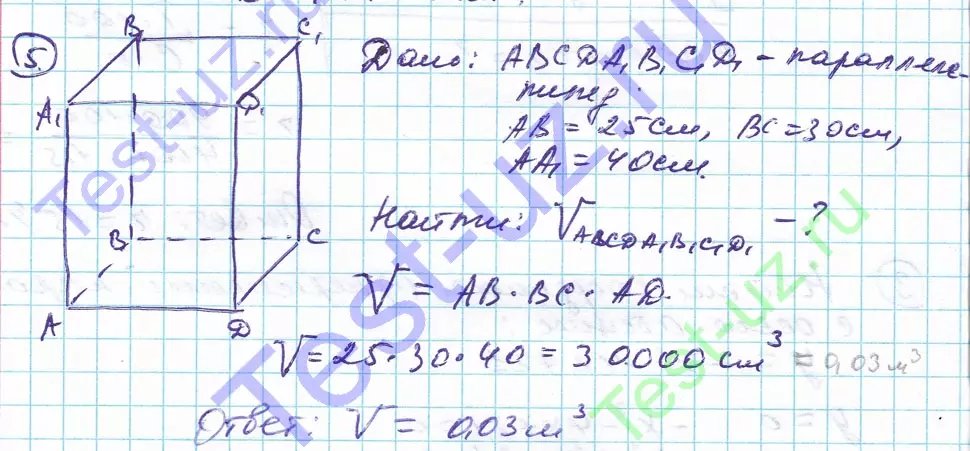 5
B₁ C₁
A₁ D₁
B C
A D
Дано: ABCDA₁B₁C₁D₁ - параллеле-
пипед.
AB = 25см, BC = 30см,
AA₁ = 40см.
Найти: V ABCDA₁B₁C₁D₁ - ?
V = AB · BC · AD.
V = 25 · 30 · 40 = 30000 см³ = 0,03 м³
Ответ: V = 0,03 м³
Test-uz.ru
Test-uz.ru
Test-uz.ru